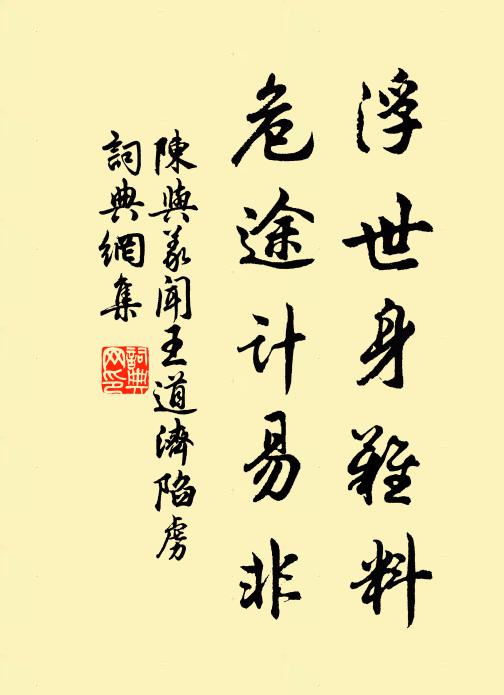 浮世身難料
危途计易非
陳與義聞王道濟陷虜
詞典網集
詞典網印